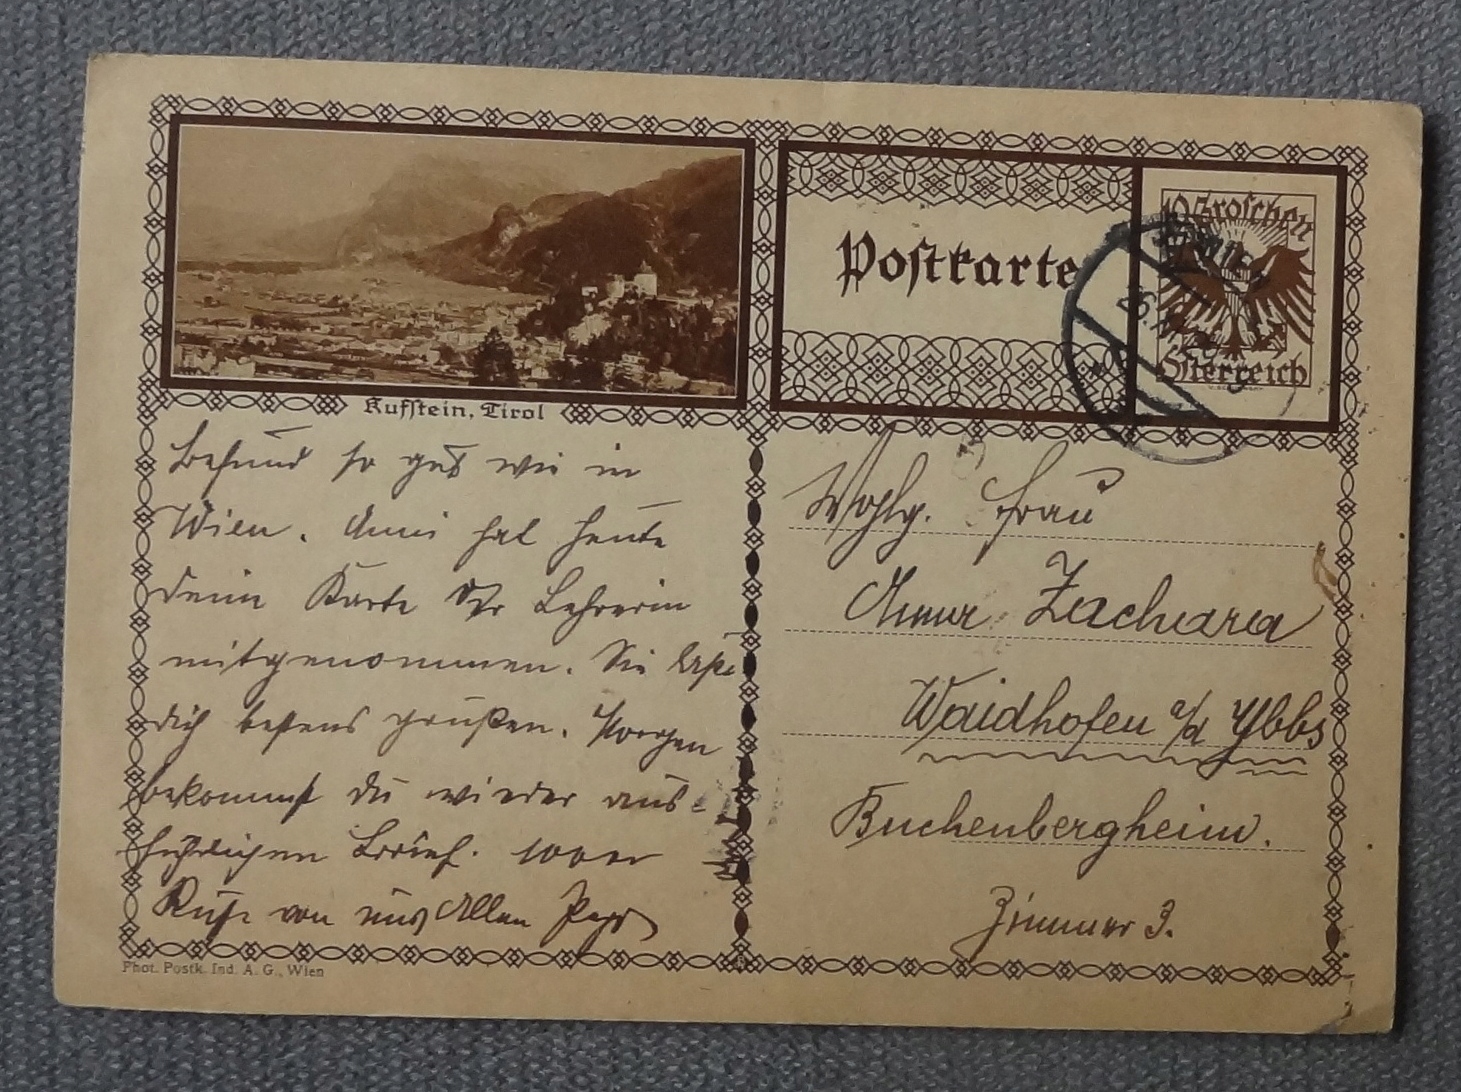 Kufstein, Tirol
Postkarte
10 Groschen
Österreich
befund so gut wie in
Wien. Anni hat heute
deine Karte der Lehrerin
mitgenommen. Sie läßt
dich bestens grüßen. Morgen
bekommst du wieder aus-
führlichen Brief. 1000er
Küße von uns Allen
Wohlg. Frau
Anna Zachara
Waidhofen a/d Ybbs
Buchenbergheim.
Zimmer 3.
Phot. Postk. Ind. A. G., Wien